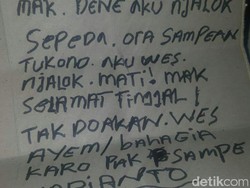 MAK. DENE AKU NJALOK
SEPEDA. ORA SAMPEAN
TUKONO. AKU WES.
NJALOK. MATI! MAK
SELAMAT TINGGAL!
TAK DOAKAN. WES
AYEM/BAHAGIA
KARO PAK SAMPE
detikcom